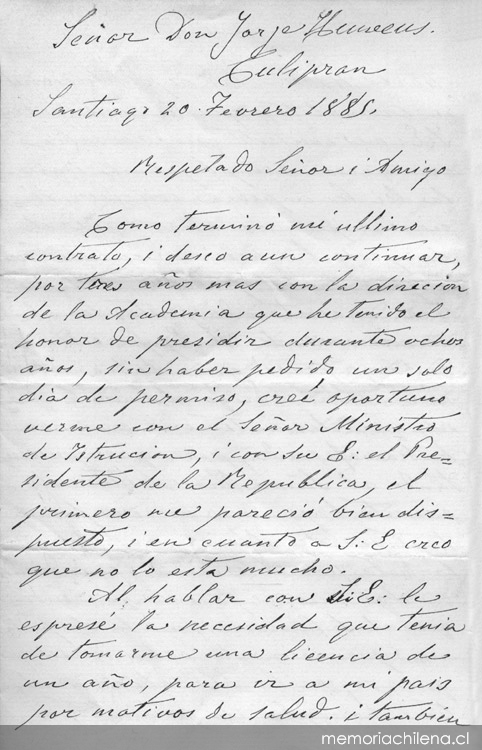 Señor Don Jorje Huneeus.
Tulipran
Santiago 20. Fevrero 1885.
Respetado Señor i Amigo
Como terminó mi ultimo
contrato, i deseo aun continuar,
por tres años mas con la direcion
de la Academia que he tenido el
honor de presidir durante ocho
años, sin haber pedido un solo
dia de permiso, creé oportuno
verme con el Señor Ministro
de Istrucion, i con su E: el Pre=
sidente de la Republica, el
primero me pareció bien dis=
puesto, i en cuanto a S: E creo
que no lo esta mucho.
Al hablar con S:E: le
espresé la necesidad que tenia
de tomarme una licencia de
un año, para ir a mi pais
por motivos de salud. i tambien
memoriachilena.cl